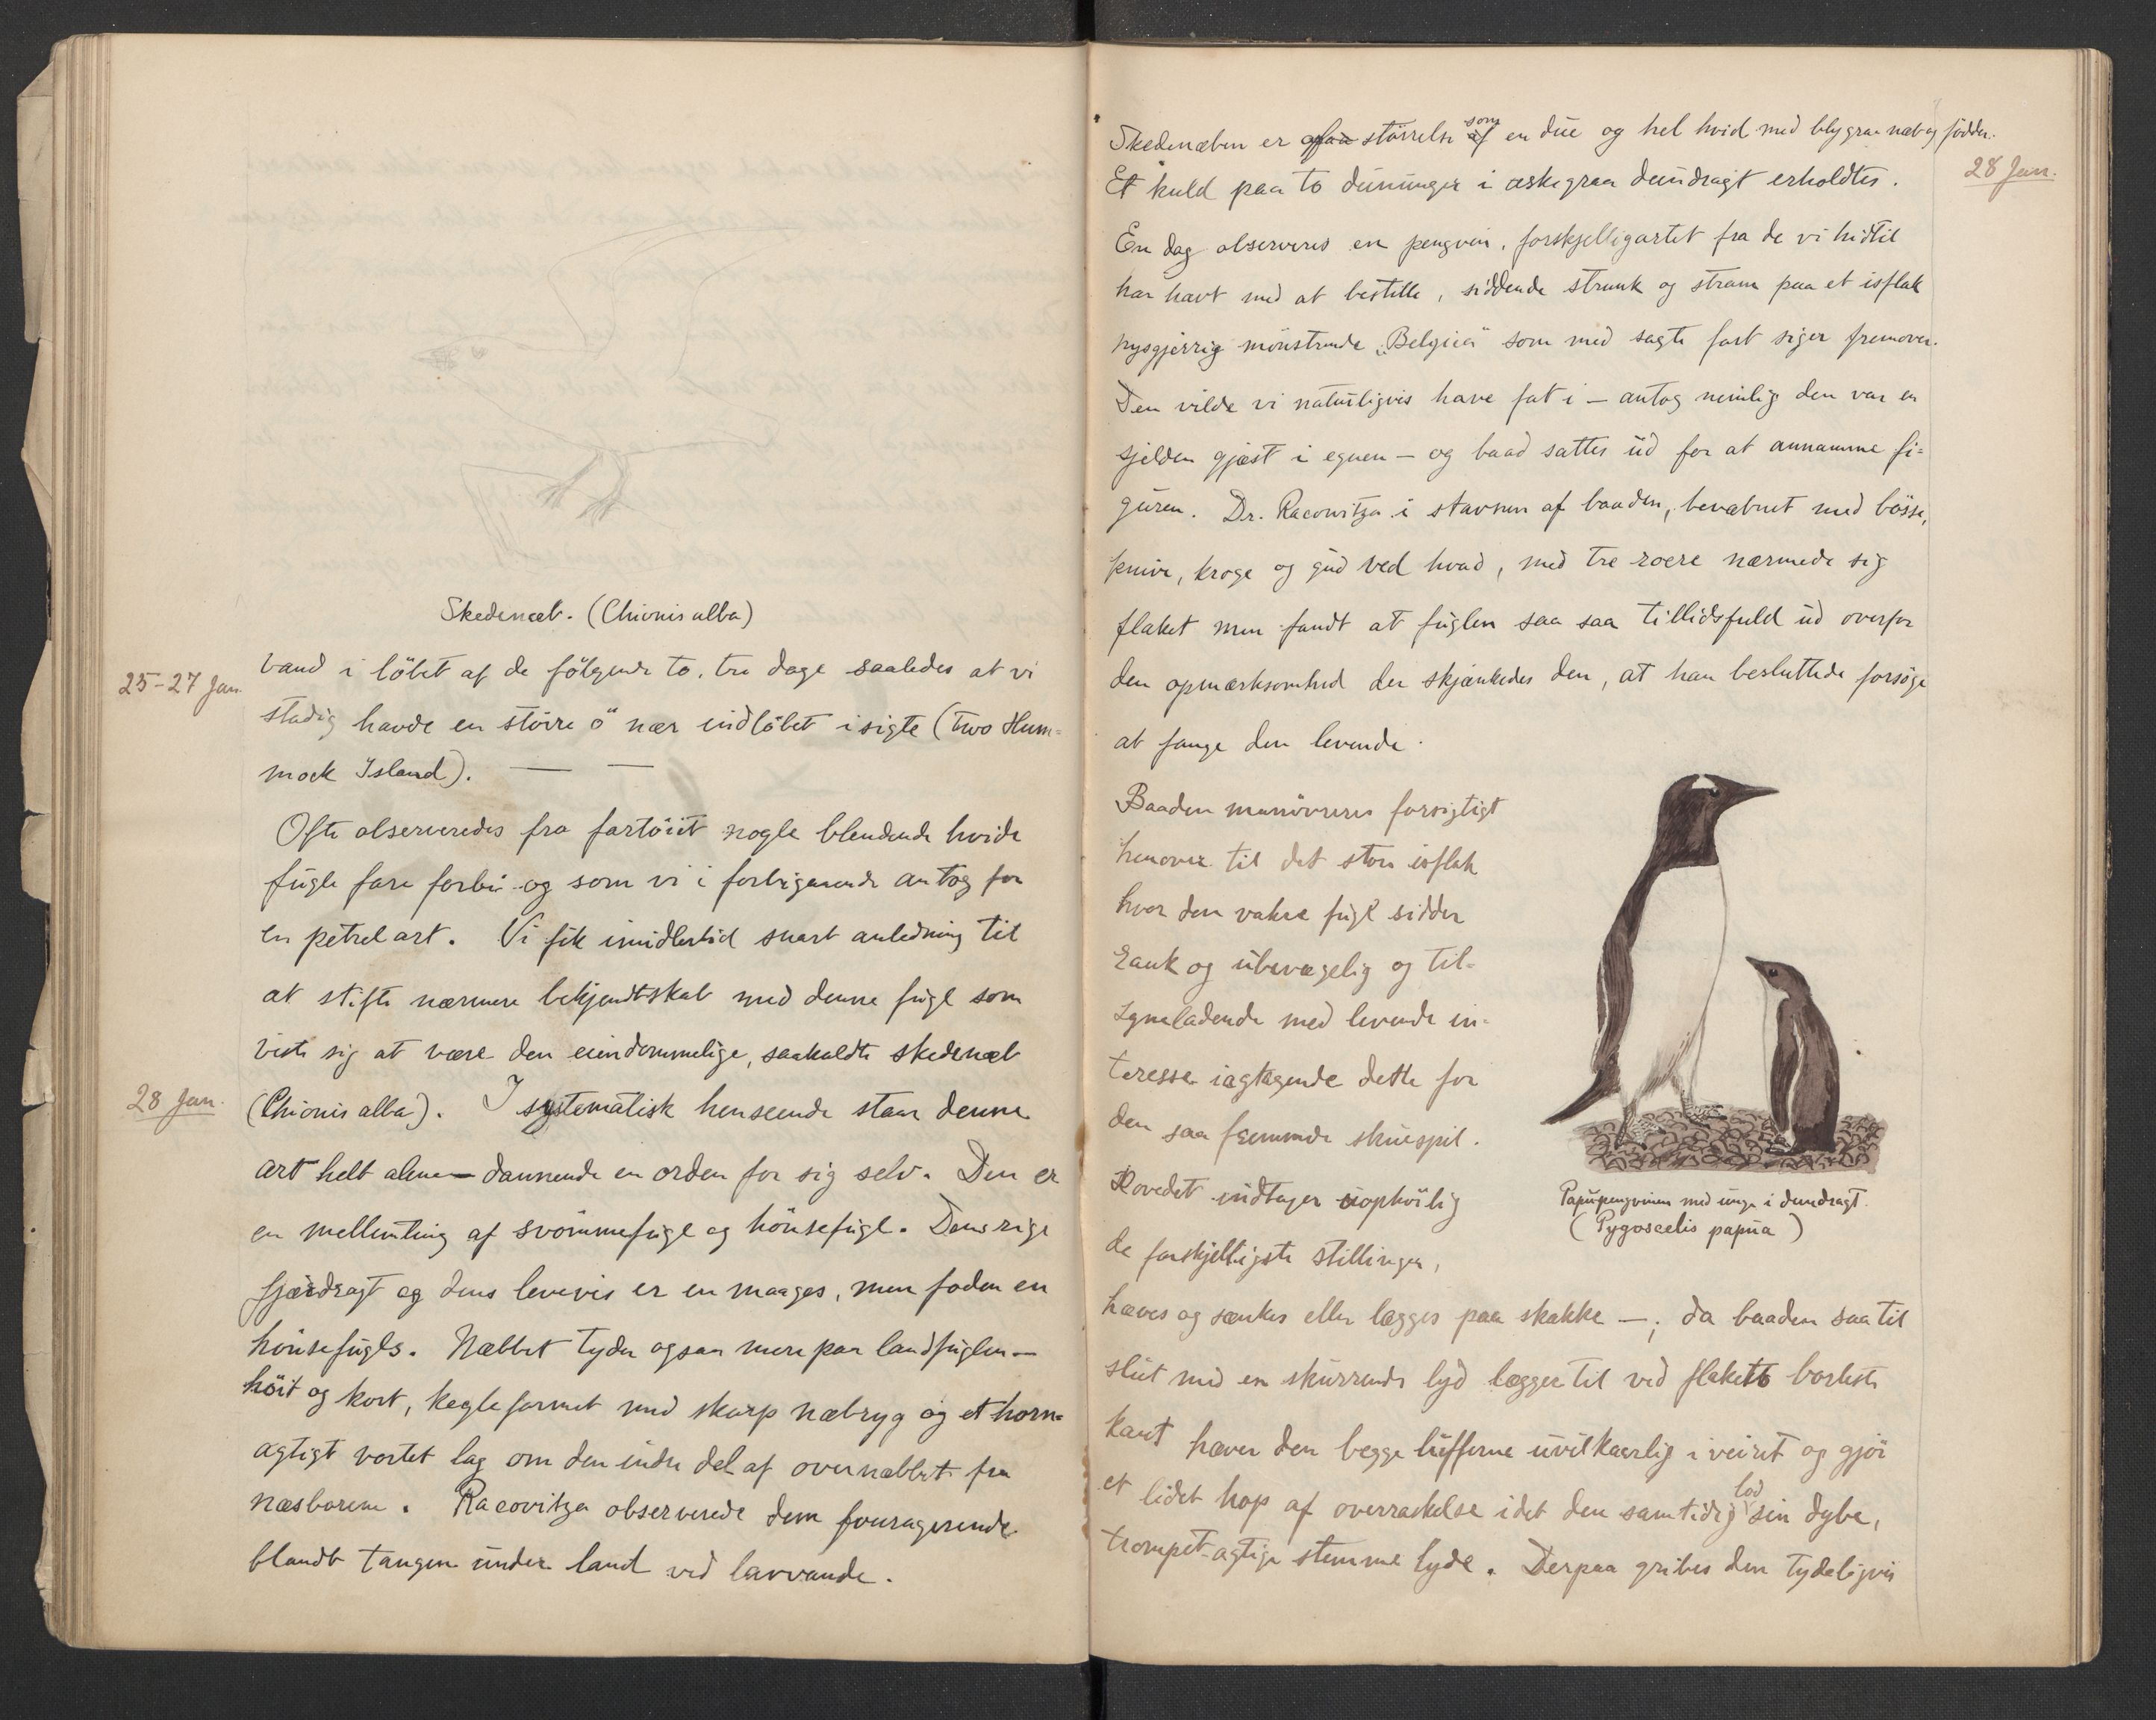 Skedenæb. (Chionis alba)
25-27 Jan.
vand i löbet af de fölgende to, tre dage saaledes at vi
stadig havde en större ö nær indlöbet i sigte (Two Hum=
mock Island). — —
Ofte observeredes fra fartöiet nogle blendende hvide
fugle fare forbi og som vi i forbigaaende antog for
en petrelart. Vi fik imidlertid snart anledning til
at stifte nærmere bekjendtskab med denne fugl som
viste sig at være den eiendommelige, saakaldte skedenæb
28 Jan.
(Chionis alba). I systematisk henseende staar denne
art helt alene — dannende en orden for sig selv. Den er
en mellemting af svömmefugl og hönsefugl. Dens rige
fjærdragt og dens levevis er en maages, men foden en
hönsefugls. Næbbet tyder ogsaa mere paa landfuglen —
höit og kort, kegleformet med skarp næbryg og et horn=
agtigt vortet lag om den indre del af overnæbbet fra
næsborene. Racovitza observerede dem fouragerende
blandt tangen under land ved lavvande.
Skedenæben er störrelse som en due og hel hvid med blygraa næb og födder.
28 Jan.
Et kuld paa to dununger i askegraa dundragt erholdtes.
En dag observeres en pengvin, forskjelligartet fra de vi hidtil
har havt med at bestille, siddende strunk og stram paa et isflak
nysgjerrig mönstrende „Belgica" som med sagte fart siger fremover.
Den vilde vi naturligvis have fat i — antog nemlig den var en
sjelden gjæst i egnen — og baad sattes ud for at annamme fi=
guren. Dr. Racowitza i stavnen af baaden, bevæbnet med bösse,
knive, kroge og gud ved hvad, med tre roere nærmede sig
flaket men fandt at fuglen saa saa tillidsfuld ud overfor
den opmærksomhed der skjænkedes den, at han besluttede forsöge
at fange den levende.
Baaden manövreres forsigtigt
henover til det store isflak
hvor den vakre fugl sidder
rank og ubevægelig og til=
syneladende med levende in=
teresse iagtagende dette for
den saa fremmede skuespil.
Hovedet indtager uophörlig
de forskjelligste stillinger,
Papupengvinen med unge i dundragt.
(Pygoscelis papua)
hæves og sænkes eller lægges paa skakke —; da baaden saa til
slut med en skurrende lyd lægger til ved flakets borteste
kant hæver den begge lufferne uvilkaarlig i veiret og gjör
et lidet hop af overraskelse idet den samtidig lod sin dybe,
trompet-agtige stemme lyde. Derpaa gribes den tydeligvis